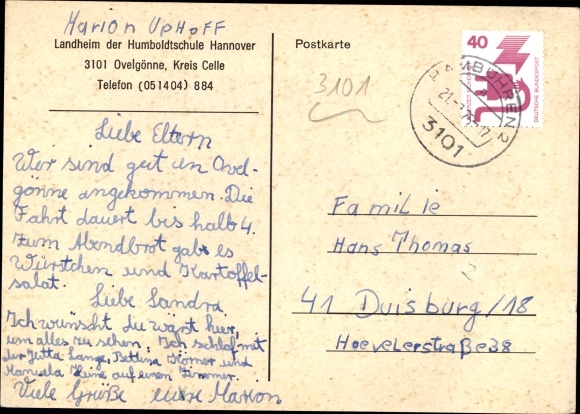 Marion UpHoFF
Landheim der Humboldtschule Hannover
3101 Ovelgönne, Kreis Celle
Telefon (051404) 884
Liebe Eltern
Wir sind gut in Ovel-
gönne angekommen. Die
Fahrt dauert bis halb 4.
Zum Abendbrot gab es
Würstchen und Kartoffel-
salat.
Liebe Sandra
Ich wünscht du wärst hier,
um alles zu sehen. Ich schlaf mit
der Jutta Lange, Bettina Körner und
Manuela Heine auf einen Zimmer.
Viele Grüße eure Marion
Postkarte
3101
40
DEUTSCHE BUNDESPOST
HAMBÜHREN 2
3101
Familie
Hans Thomas
41 Duisburg/18
Hoevelerstraße 38